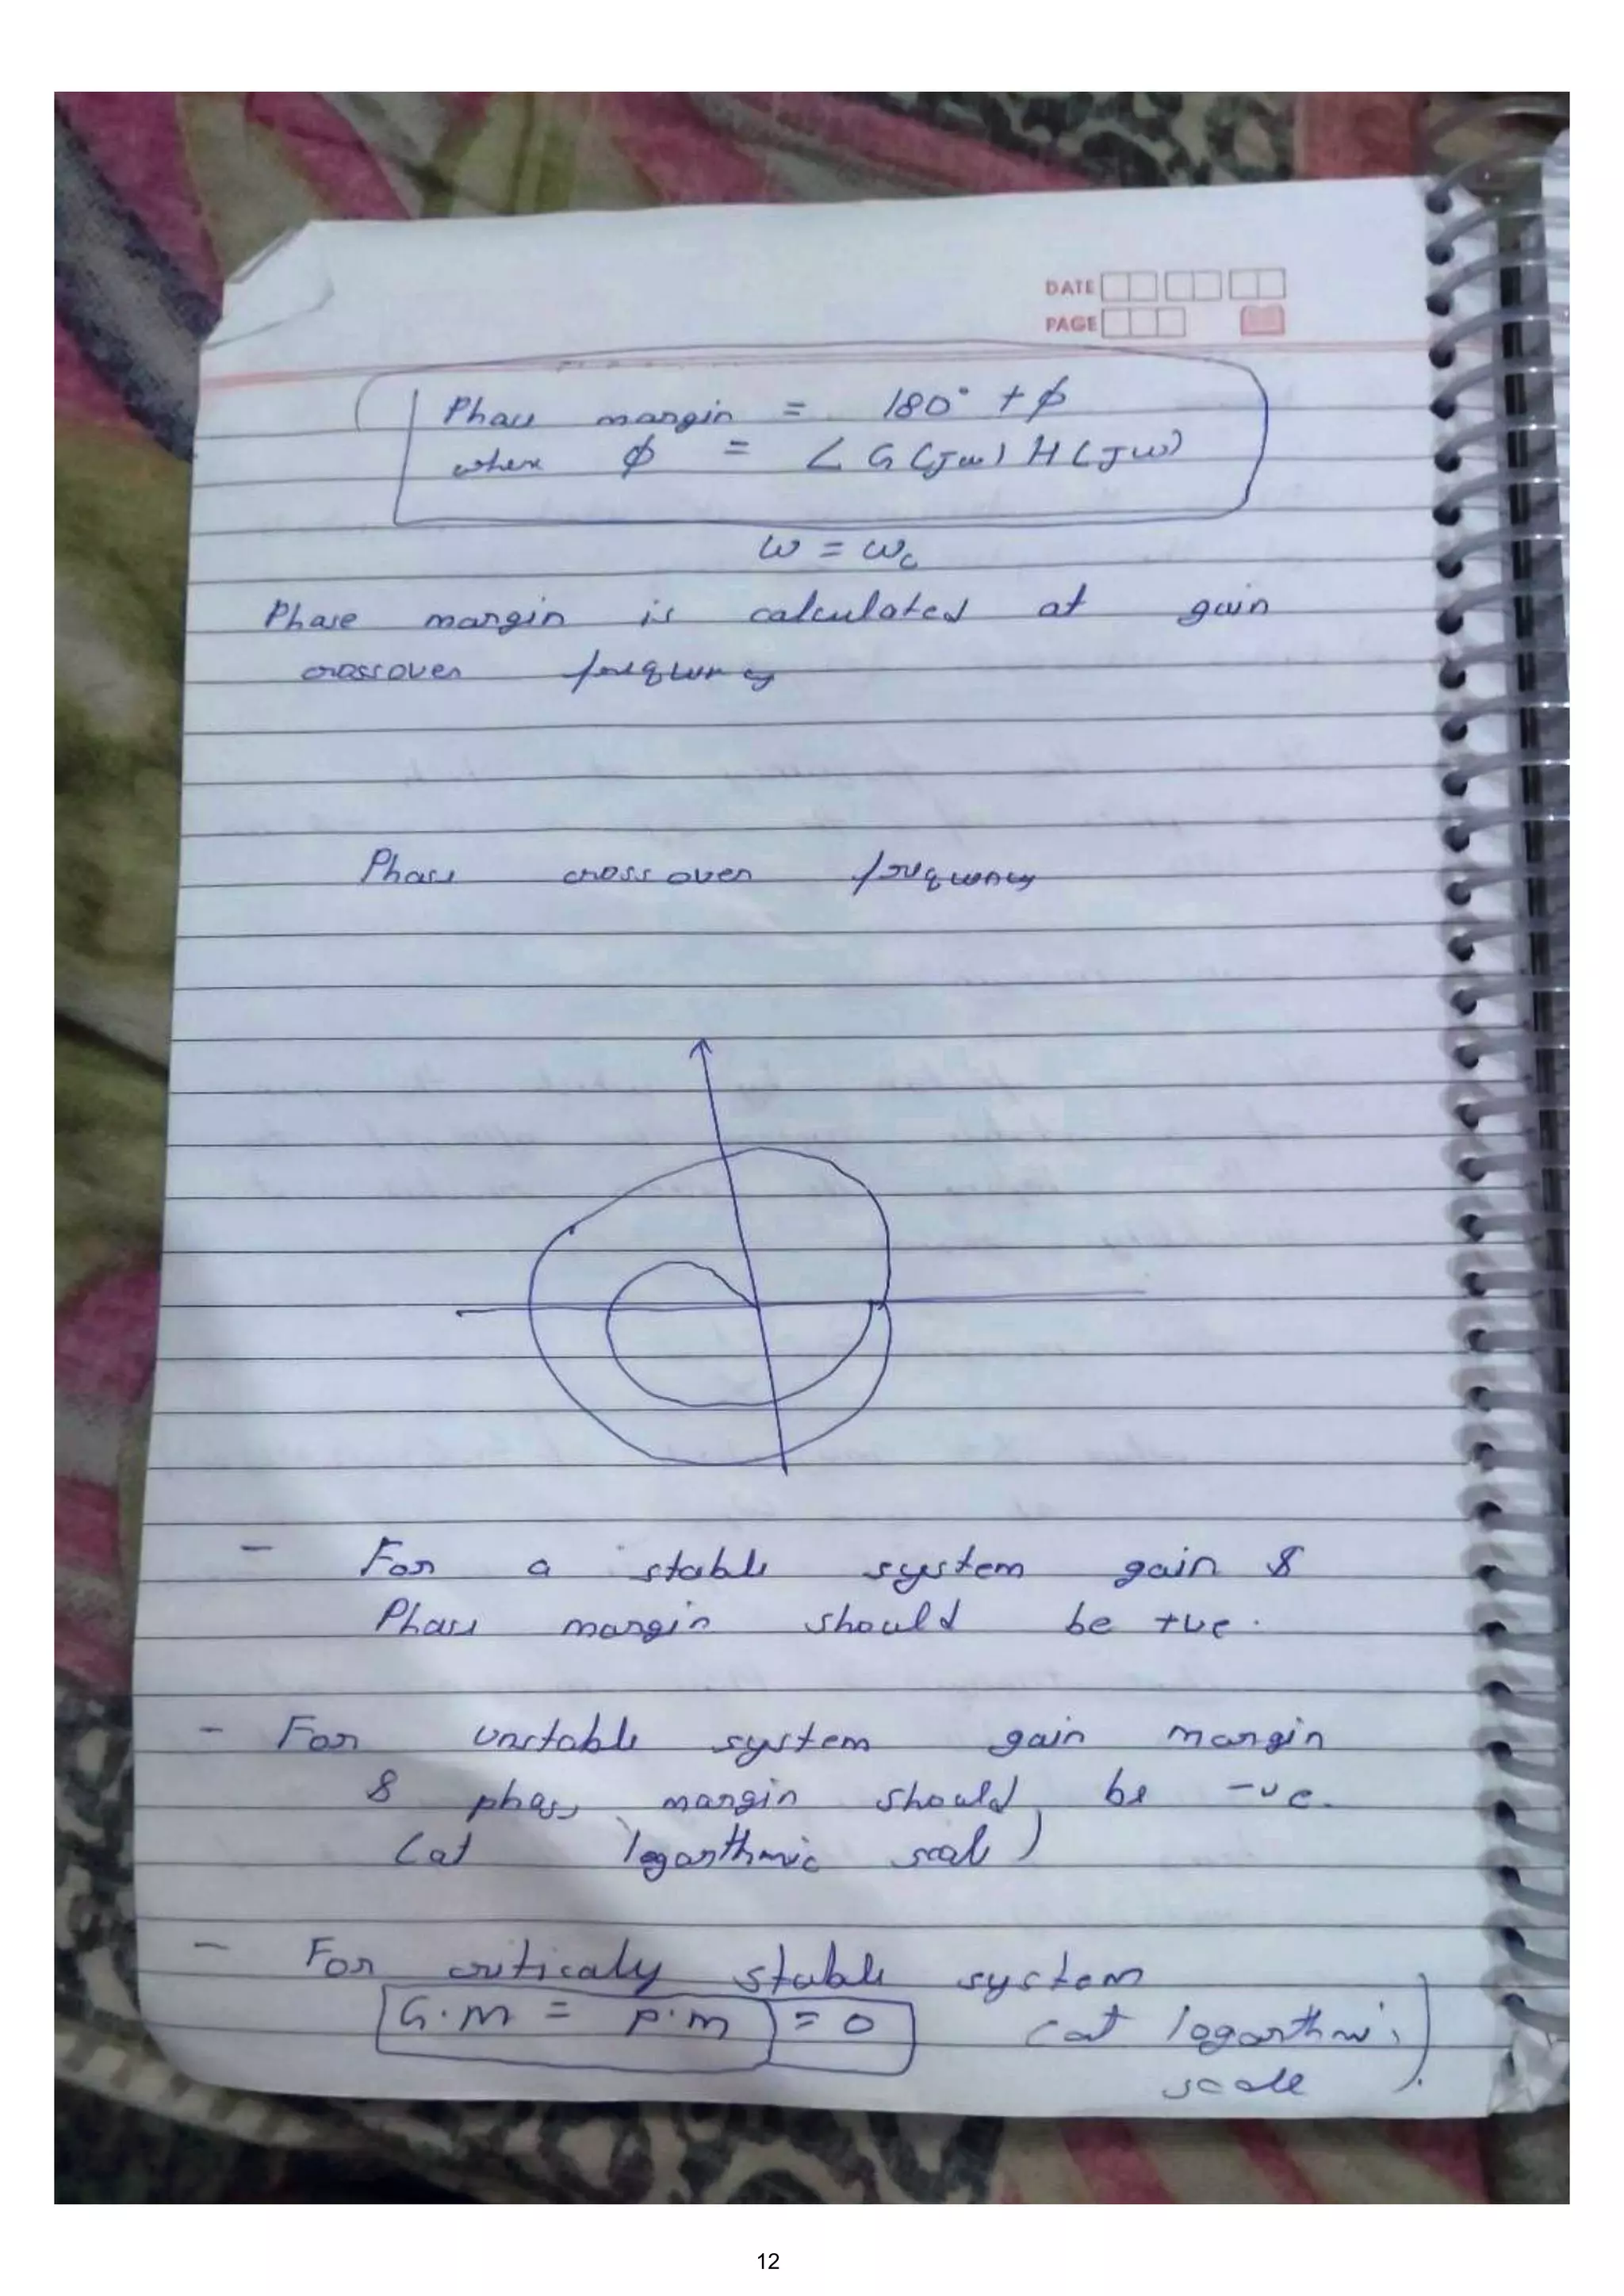 DATE
PAGE
Phase margin = 180° + ϕ
where ϕ = ∠ G(jω) H(jω)
ω = ωc
Phase margin is calculated at gain
crossover frequency
Phase crossover frequency
- For a stable system gain &
Phase margin should be +ve.
- For unstable system gain margin
& phase margin should be -ve.
(at logarithmic scale)
- For criticaly stable system
G.m = p.m = 0 (at logarithmic
scale)
12